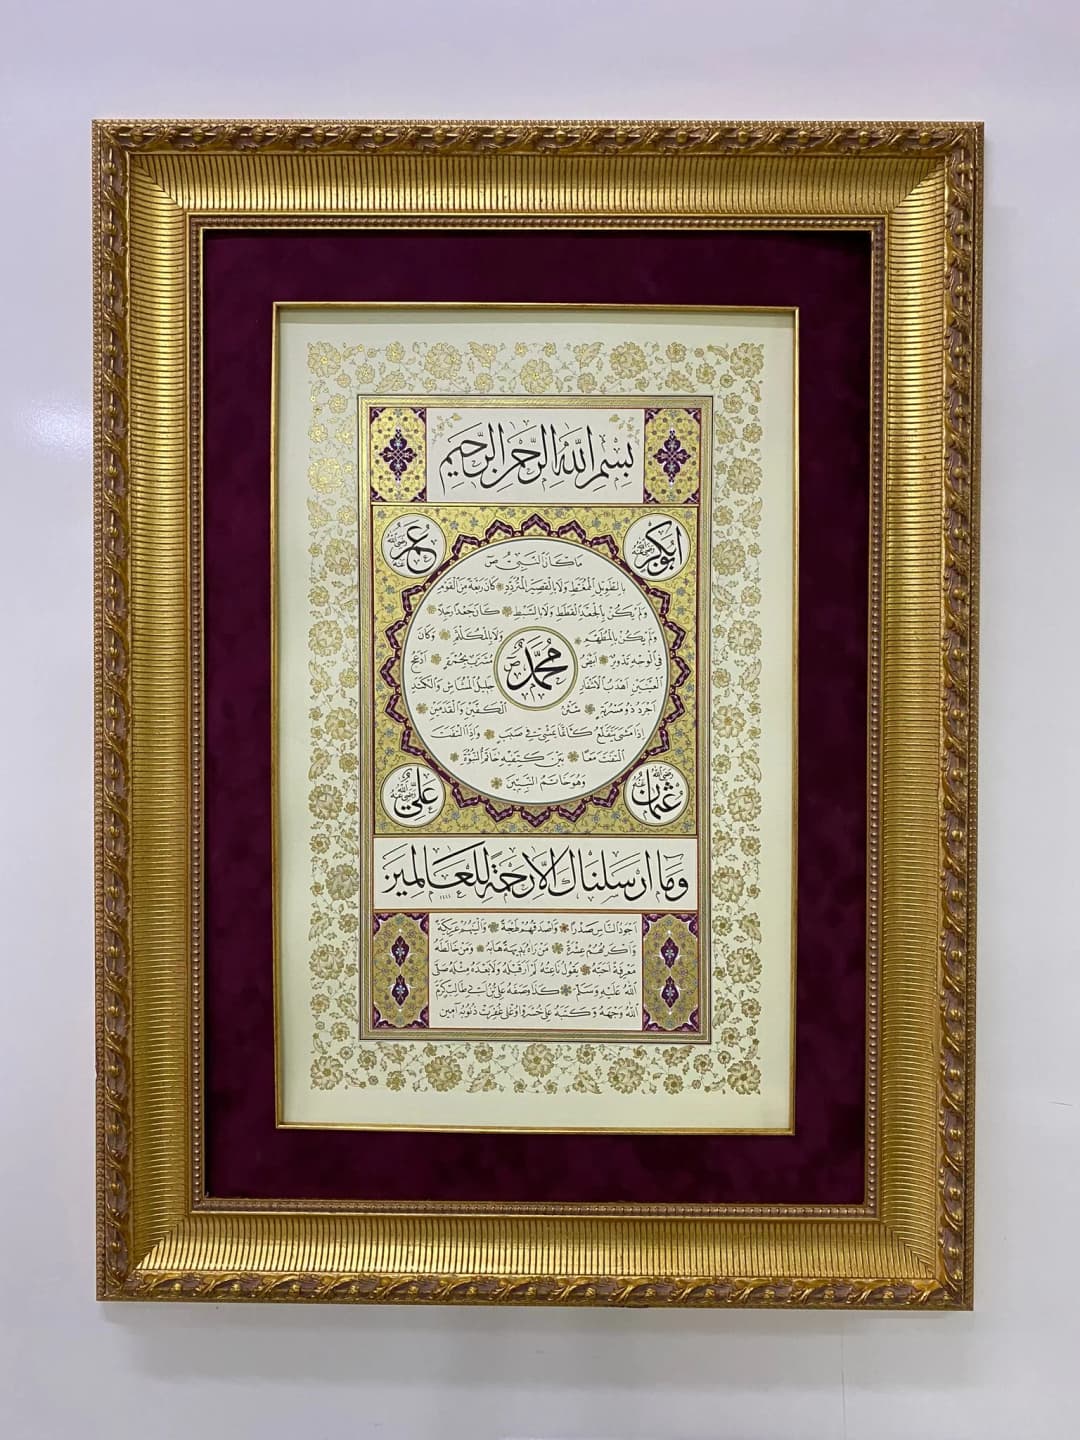 بِسْمِ اللَّهِ الرَّحْمٰنِ الرَّحِيمِ
ابوبكر رضي الله عنه
عمر رضي الله عنه
ما كان النبي ص
بالطويل الممغط ولا بالقصير المتردد كان ربعة من القوم
ولم يكن بالجعد القطط ولا بالسبط كان جعدا رجلا
ولم يكن بالمطهم ولا بالمكلثم وكان
في الوجه تدوير ابيض مشرب بحمرة ادعج
العينين اهدب الاشفار جليل المشاش والكتد
اجرد ذو مسربة شثن الكفين والقدمين
اذا مشى يتقلع كانما يمشي في صبب واذا التفت
التفت معا بين كتفيه خاتم النبوة
وهو خاتم النبيين
محمد ص
عثمان رضي الله عنه
علي رضي الله عنه
وما ارسلناك الا رحمة للعالمين
اجود الناس صدرا واصدقهم لهجة والينهم عريكة
واكرمهم عشرة من راه بديهة هابه ومن خالطه
معرفة احبه يقول ناعته لم ار قبله ولا بعده مثله صلى
الله عليه وسلم كذا وصفه علي بن ابي طالب كرم
الله وجهه وكتبه علي غفرت ذنوبه آمين